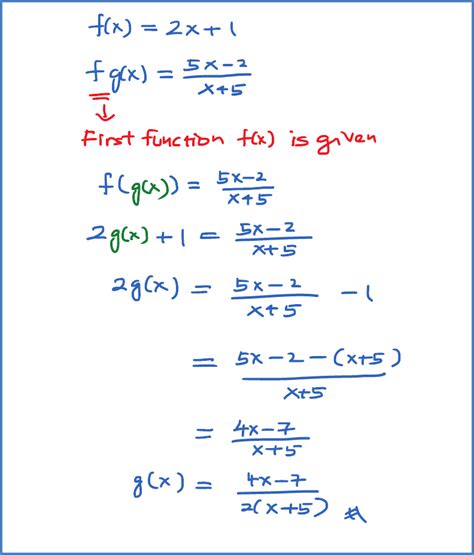 f(x) = 2x+1
fg(x) = (5x-2)/(x+5)
First function f(x) is given
f(g(x)) = (5x-2)/(x+5)
2g(x)+1 = (5x-2)/(x+5)
2g(x) = (5x-2)/(x+5) - 1
= (5x-2-(x+5))/(x+5)
= (4x-7)/(x+5)
g(x) = (4x-7)/(2(x+5))